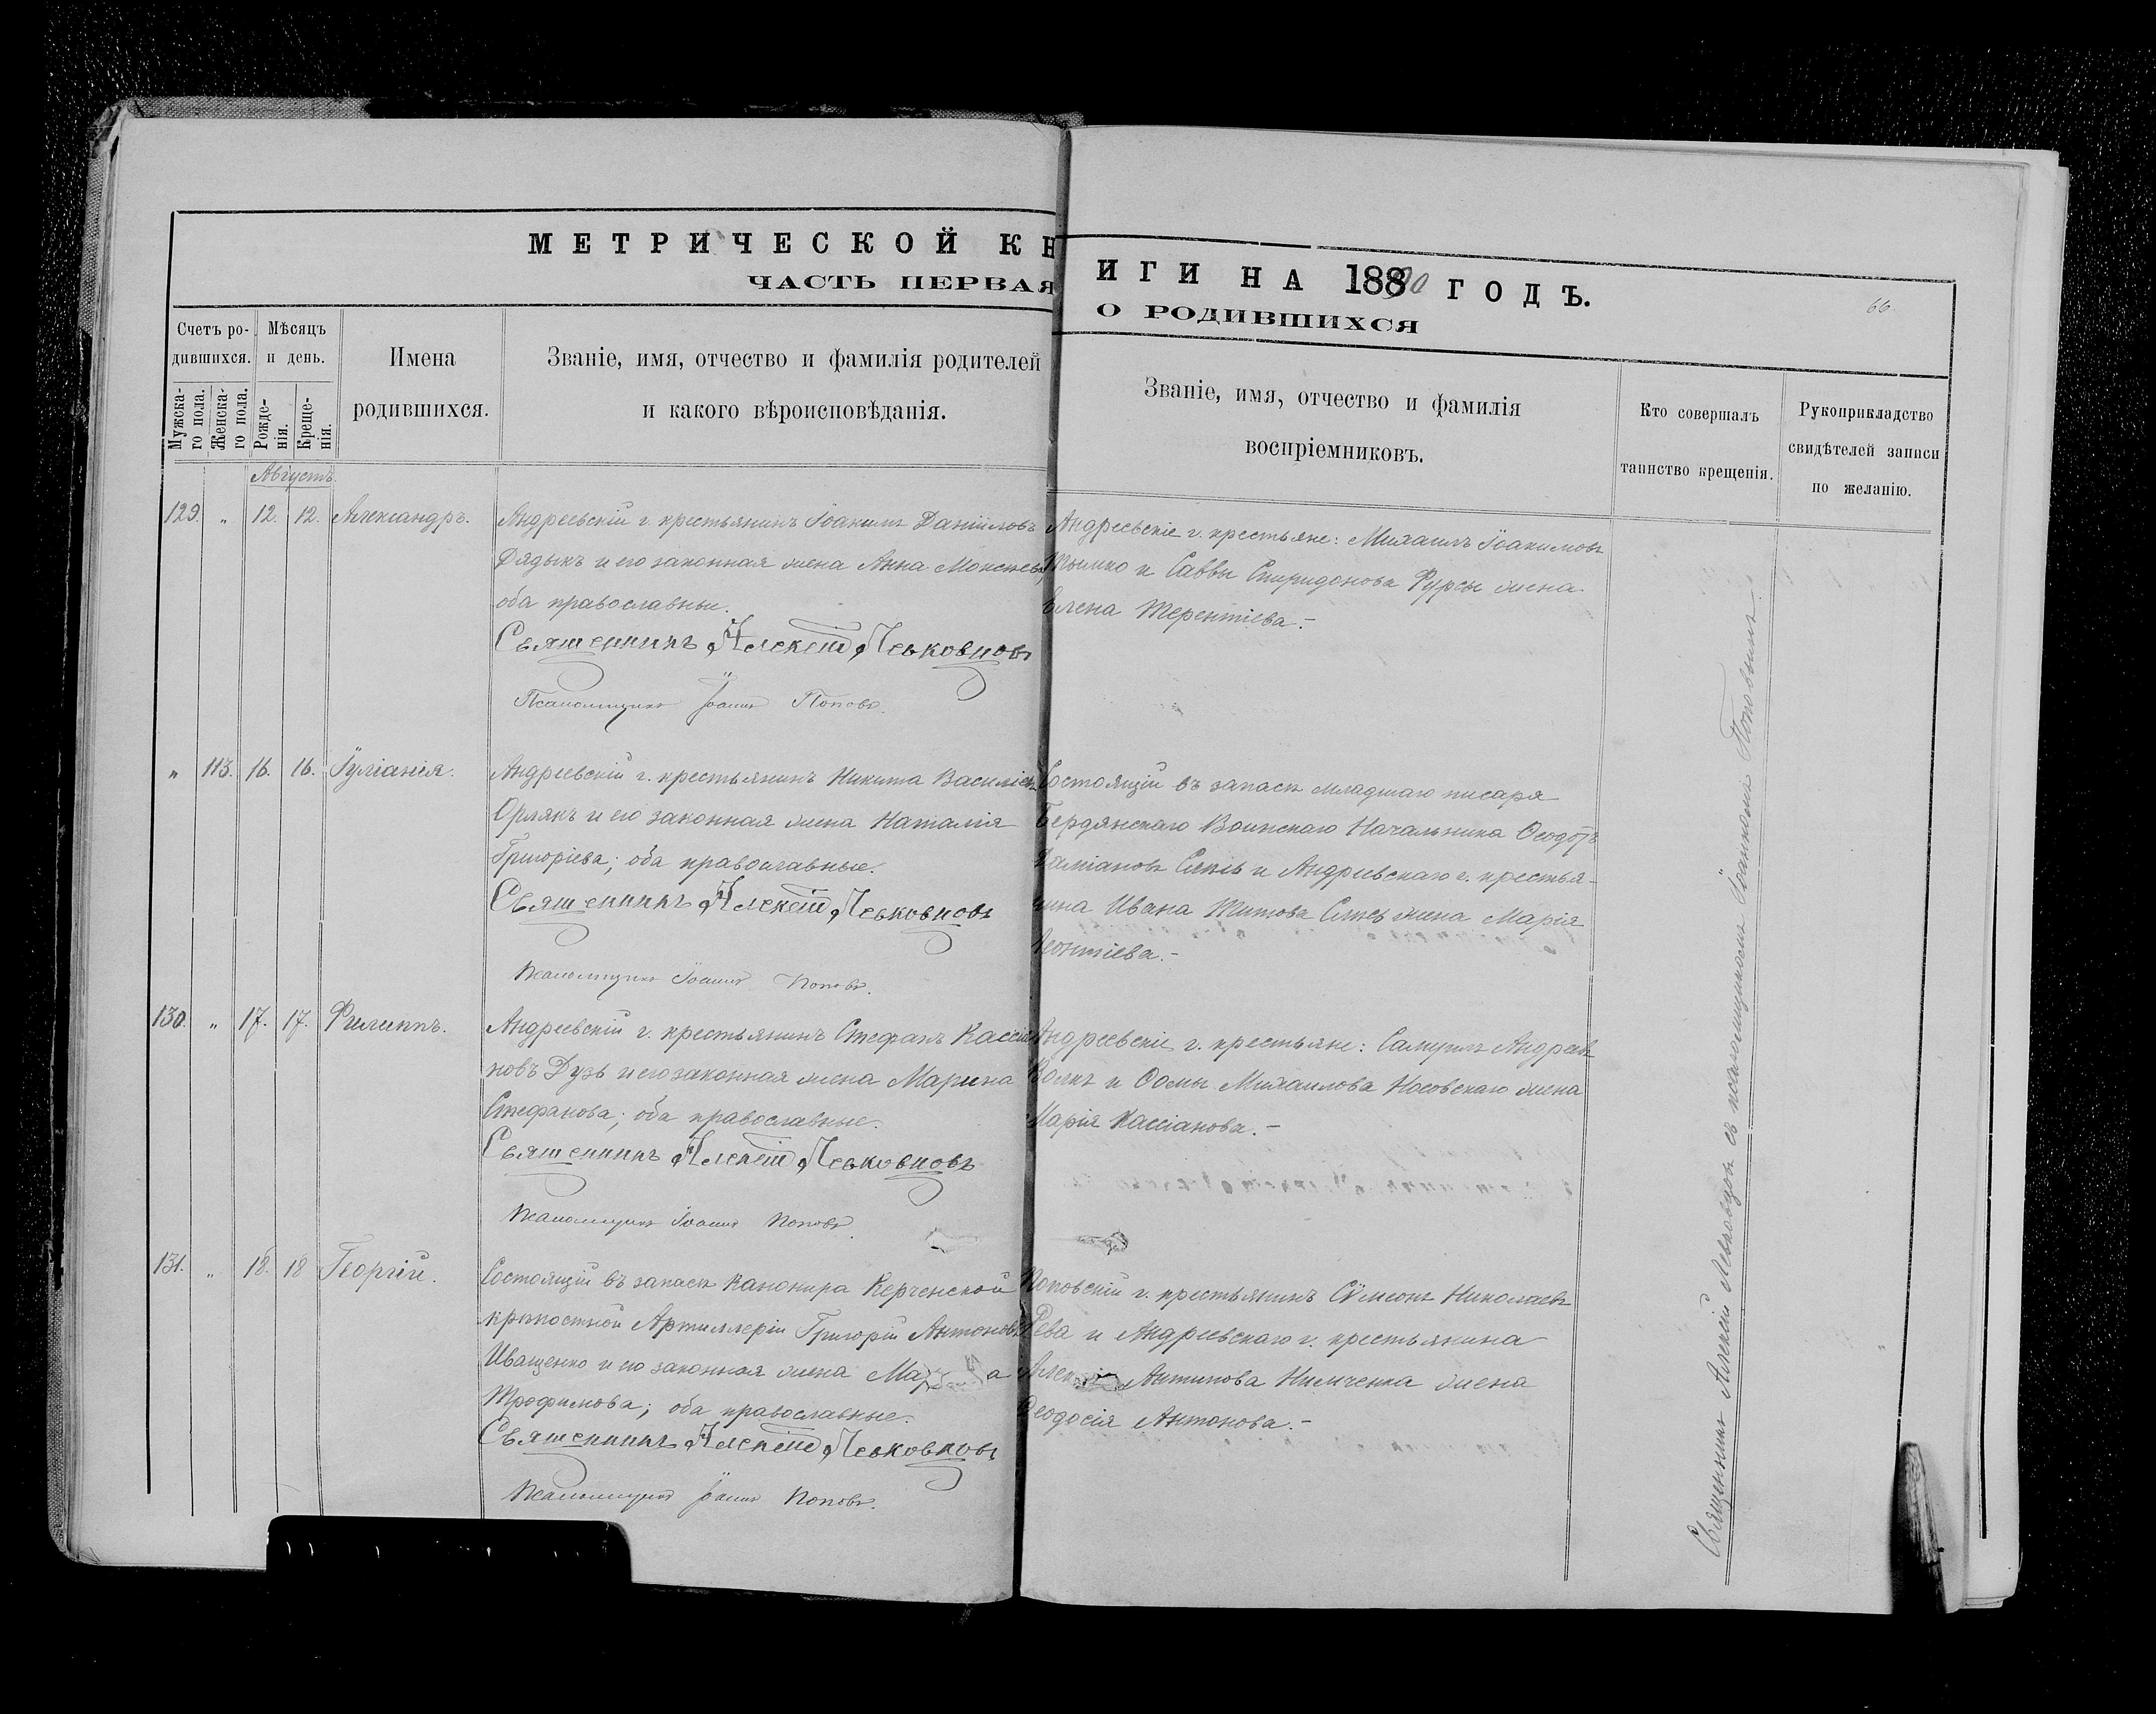 МЕТРИЧЕСКОЙ КН
ЧАСТЬ ПЕРВАЯ
Счетъ ро-
дившихся.
Мѣсяцъ
и день.
Мужска-
го пола.
Женска-
го пола.
Рожде-
нія.
Креще-
нія.
Имена
родившихся.
Званіе, имя, отчество и фамилія родителей
и какого вѣроисповѣданія.
Августъ.
129. " 12. 12. Александръ.
Андреевскій г. крестьянинъ Іоакимъ Даніиловъ
Дядыкъ и его законная жена Анна Моисеева,
оба православные.
Священникъ Алексій Левковцовъ
Псаломщикъ Іоаннъ Поповъ.
" 113. 16. 16. Іуліанія.
Андреевскій г. крестьянинъ Никита Василіевъ
Орлякъ и его законная жена Наталія
Григоріева; оба православные.
Священникъ Алексій Левковцовъ
Псаломщикъ Іоаннъ Поповъ.
130. " 17. 17. Филиппъ.
Андреевскій г. крестьянинъ Стефанъ Кассіа
новъ Дузь и его законная жена Марина
Стефанова; оба православные.
Священникъ Алексій Левковцовъ
Псаломщикъ Іоаннъ Поповъ.
131. " 18. 18 Георгій.
Состоящій въ запасѣ Канонира Керченской
крѣпостной Артиллеріи Григорій Антоновъ
Иващенко и его законная жена Ма а
Трофимова; оба православные.
Священникъ Алексій Левковцовъ
Псаломщикъ Іоаннъ Поповъ.
ИГИ НА 18890 ГОДЪ.
О РОДИВШИХСЯ
66.
Званіе, имя, отчество и фамилія
воспріемниковъ.
Кто совершалъ
таинство крещенія.
Рукоприкладство
свидѣтелей записи
по желанію.
Андреевскіе г. крестьяне: Михаилъ Іоакимовъ
Тымко и Саввы Спиридонова Фурсы жена
Елена Терентіева.-
Состоящій въ запасѣ младшаго писаря
Бердянскаго Воинскаго Начальника Ѳеодотъ
Даміановъ и Андреевскаго г. крестья-
нина Ивана Титова жена Марія
Леонтіева.-
Андреевскіе г. крестьяне: Самуилъ Андреевъ
Волкъ и Ѳомы Михаилова Носовскаго жена
Марія Кассіанова.-
Поповскій г. крестьянинъ Сѵмеонъ Николаевъ
Рева и Андреевскаго г. крестьянина
Алексія Антипова Нимченка жена
Ѳеодосія Антонова.-
Священникъ Алексій Левковцовъ съ псаломщикомъ Іоанномъ Поповымъ.